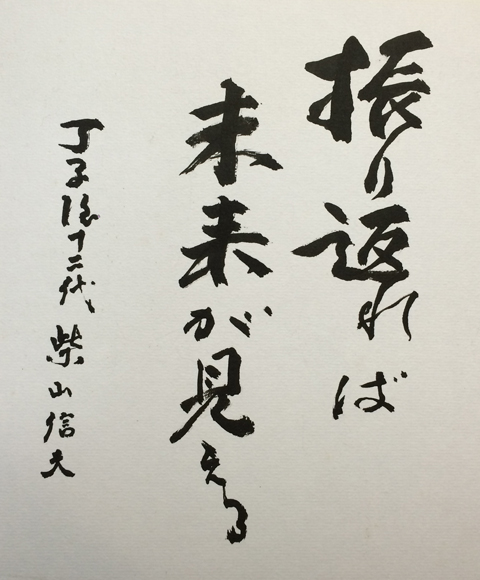 振り返れば
未来が見える
丁子屋十二代 柴山信夫